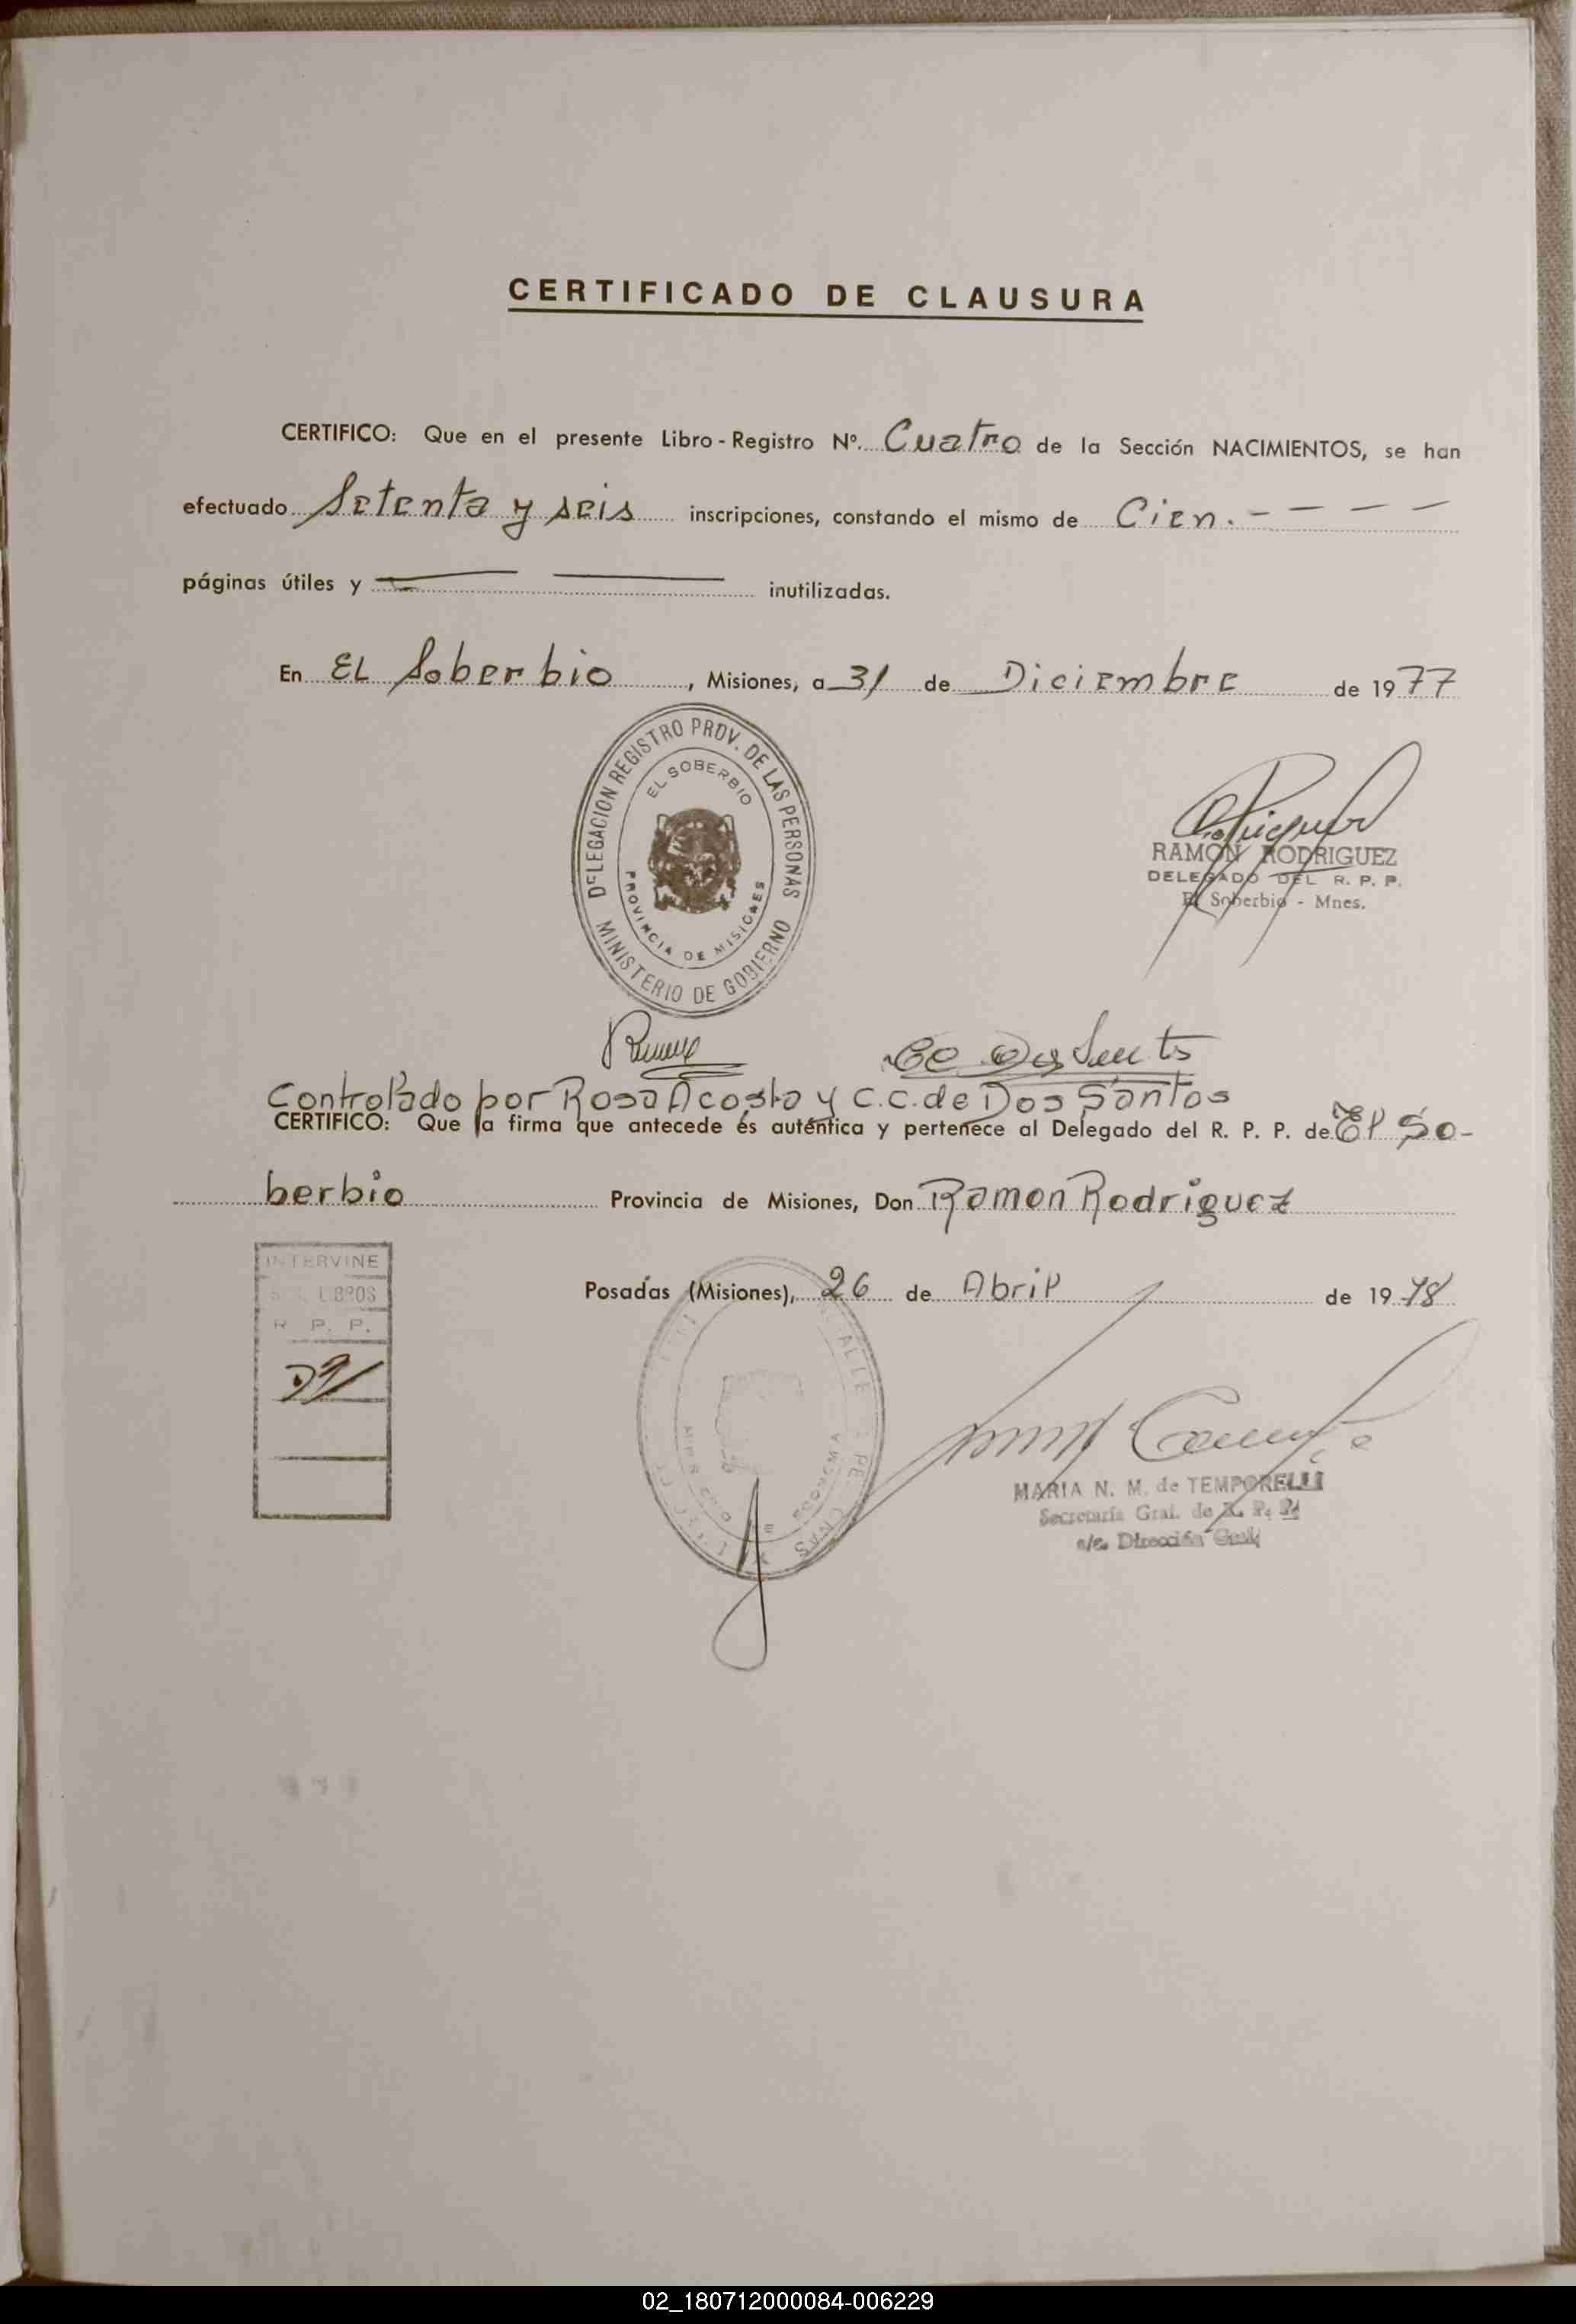 CERTIFICADO DE CLAUSURA
CERTIFICO: Que en el presente Libro - Registro Nº. Cuatro de la Sección NACIMIENTOS, se han
efectuado Setenta y seis inscripciones, constando el mismo de Cien. - - - -
páginas útiles y inutilizadas.
En EL Soberbio, Misiones, a 31 de Diciembre de 1977
DELEGACION REGISTRO PROV. DE LAS PERSONAS
EL SOBERBIO
PROVINCIA DE MISIONES
MINISTERIO DE GOBIERNO
RAMON RODRIGUEZ
DELEGADO DEL R. P. P.
El Soberbio - Mnes.
Controlado por Rosa Acosta y C.C. de Dos Santos
CERTIFICO: Que la firma que antecede es auténtica y pertenece al Delegado del R. P. P. de El So-
berbio Provincia de Misiones, Don Ramon Rodriguez
Posadas (Misiones), 26 de Abril de 1978
INTERVINE
LIBROS
R. P. P.
MARIA N. M. de TEMPORELLI
Secretaría Gral. de R. P. P.
a/c. Dirección Gral.
02_180712000084-006229